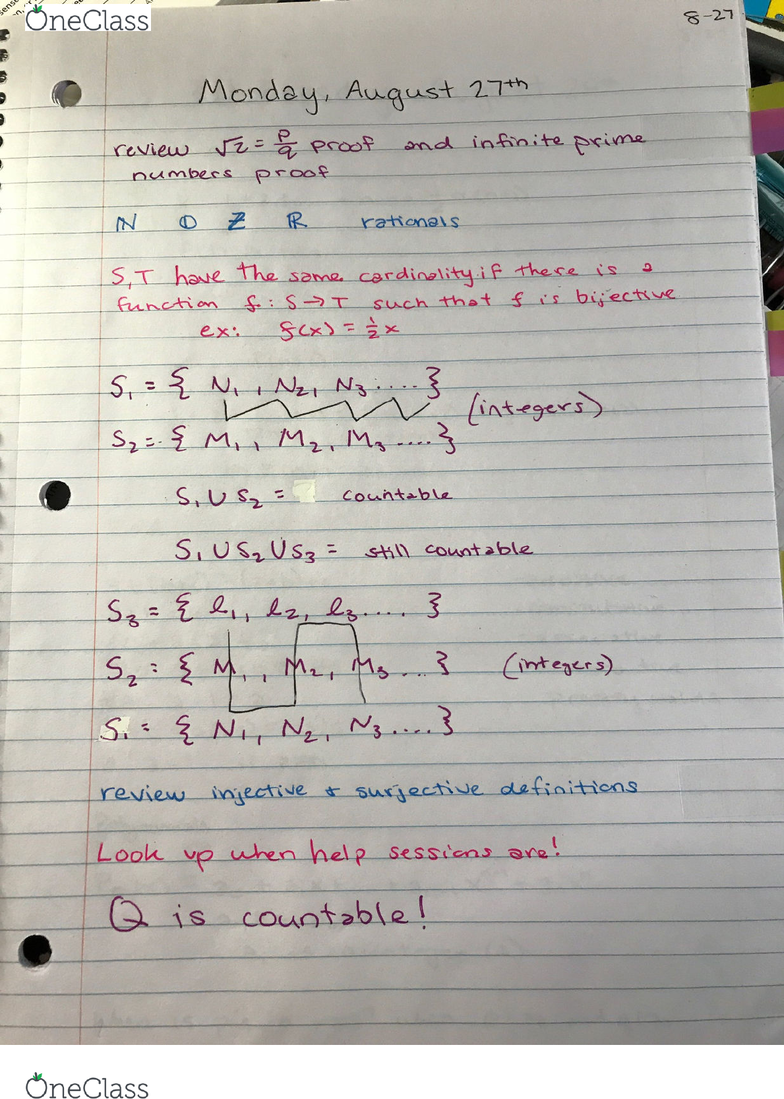 OneClass
8-27
Monday, August 27th
review √2 = p/q proof and infinite prime
numbers proof
ℕ ℚ ℤ ℝ rationals
S,T have the same cardinality if there is a
function f: S→T such that f is bijective
ex: f(x) = ½x
S₁ = { N₁, N₂, N₃ .... }
(integers)
S₂ = { M₁, M₂, M₃ .... }
S₁ ∪ S₂ = countable
S₁ ∪ S₂ ∪ S₃ = still countable
S₃ = { l₁, l₂, l₃ .... }
S₂ = { M₁, M₂, M₃ ... } (integers)
S₁ = { N₁, N₂, N₃ .... }
review injective & surjective definitions
Look up when help sessions are!
Q is countable!
OneClass